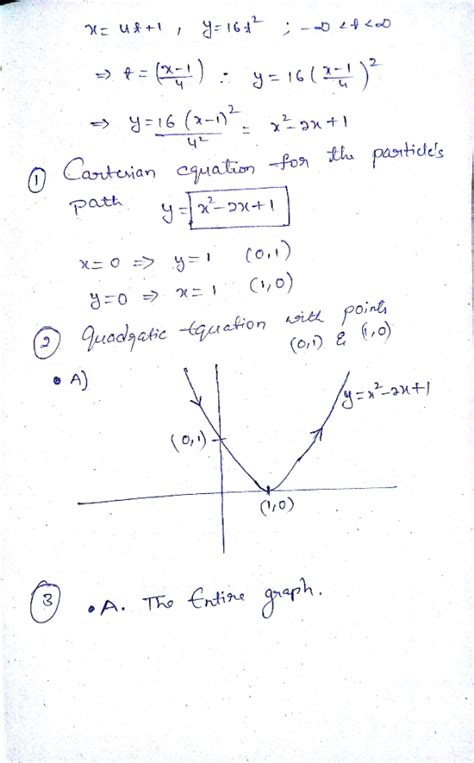 x = 4t+1 , y = 16t² ; -∞ < t < ∞
⇒ t = (x-1/4) ∴ y = 16(x-1/4)²
⇒ y = 16(x-1)²/4² = x²-2x+1
① Cartesian equation for the particle's
path y = x²-2x+1
x=0 ⇒ y=1 (0,1)
y=0 ⇒ x=1 (1,0)
② Quadratic Equation with points
(0,1) & (1,0)
• A)
y=x²-2x+1
(0,1)
(1,0)
③ • A. The Entire graph.